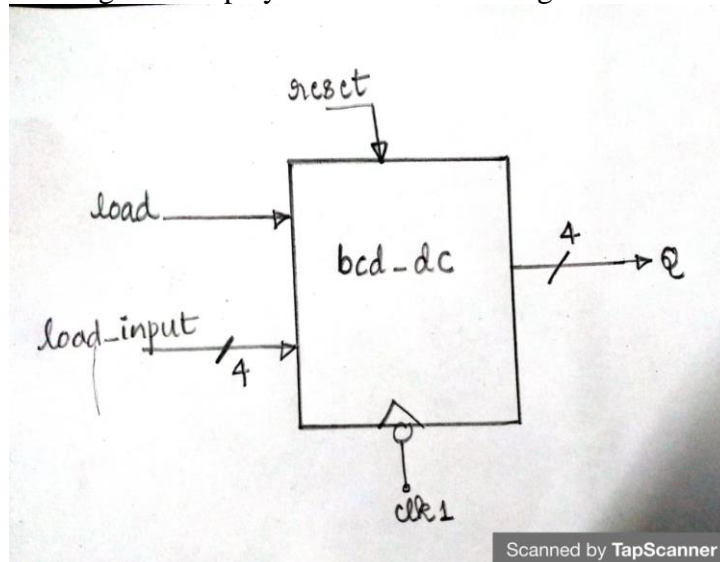 reset
load
bcd_dc
4
Q
load_input
4
clk1
Scanned by TapScanner